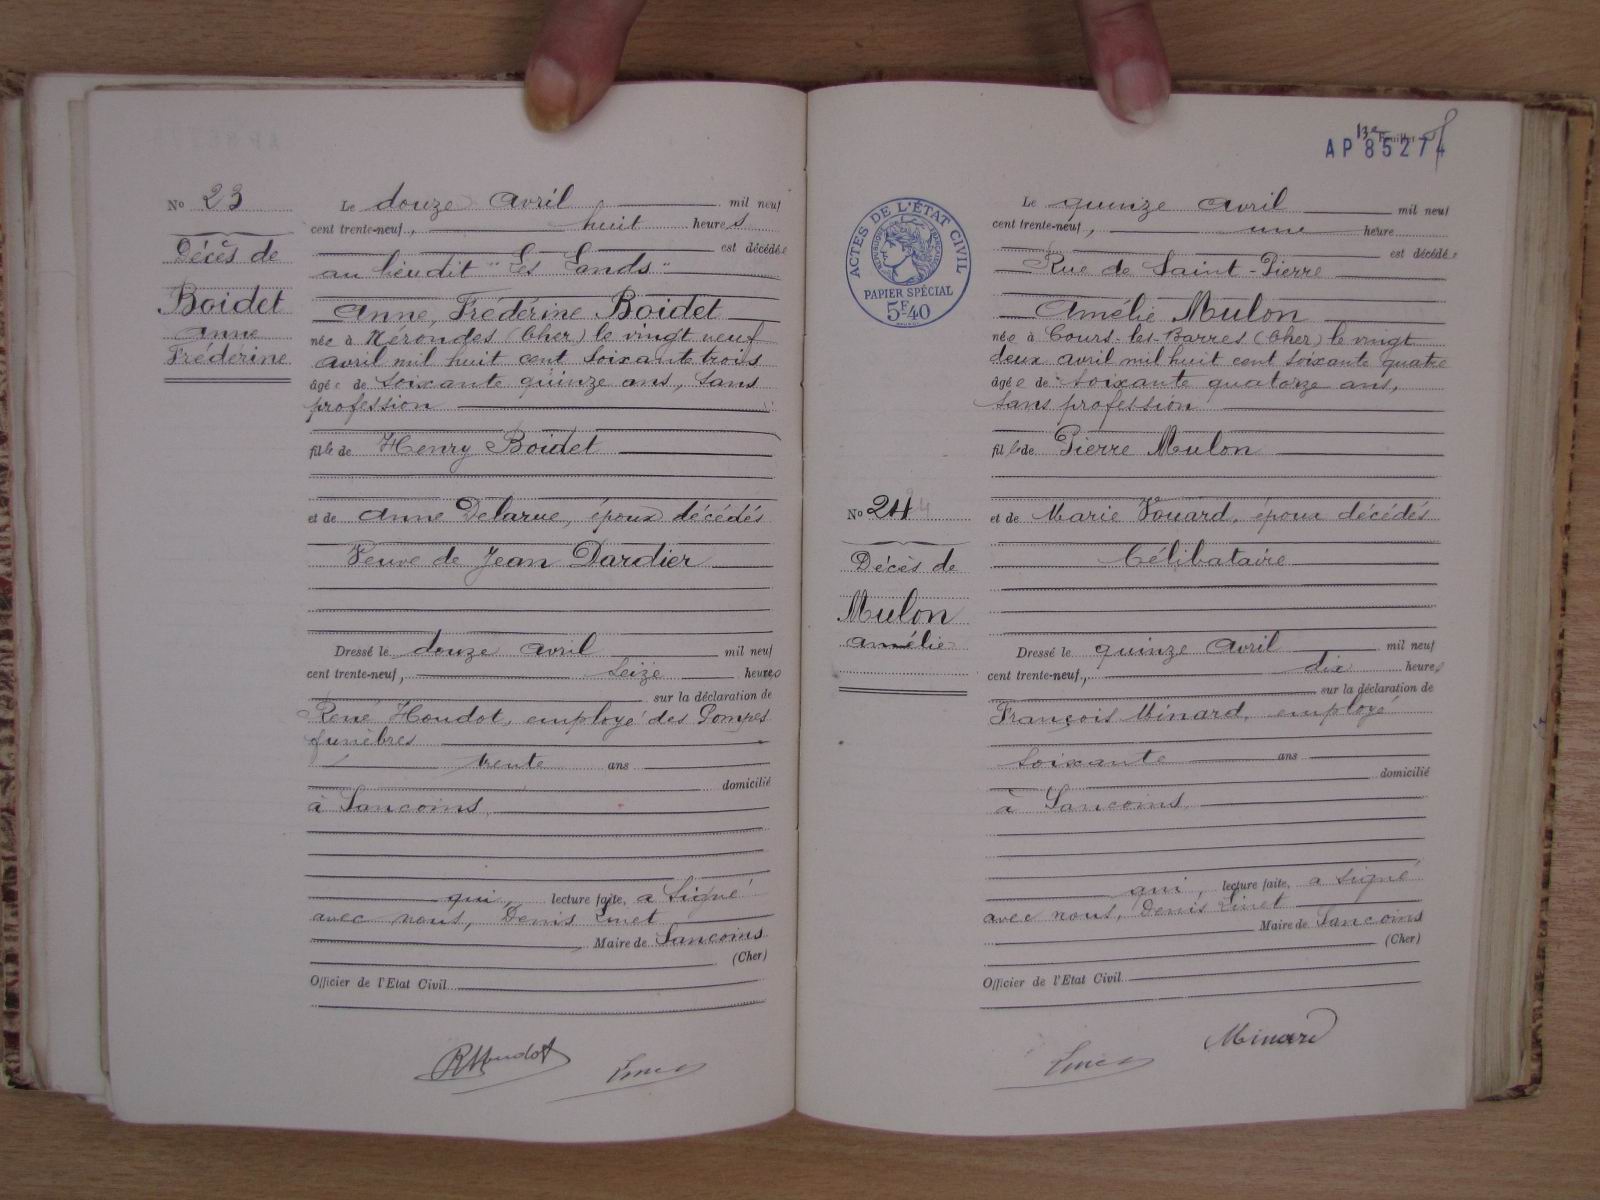 No 23
Décès de
Boidet
Anne
Frédérine
Le douze avril mil neuf
cent trente-neuf, huit heures
est décédée
au lieudit "Les Lands"
Anne, Frédérine Boidet
née à Nérondes (Cher) le vingt neuf
avril mil huit cent soixante trois
âgée de soixante quinze ans, sans
profession
fille de Henry Boidet
et de Anne Delarue, époux décédés
Veuve de Jean Dardier
Dressé le douze avril mil neuf
cent trente-neuf, seize heures
sur la déclaration de
René Houdot, employé des Pompes
funèbres
trente ans
domicilié
à Sancoins
qui, lecture faite, a signé
avec nous, Denis Linet
Maire de Sancoins
(Cher)
Officier de l'Etat Civil
RHoudot
Linet
13e Feuillet
AP 85274
ACTES DE L'ÉTAT CIVIL
RÉPUBLIQUE FRANÇAISE
PAPIER SPÉCIAL
5F40
No 24 24
Décès de
Mulon
Amélie
Le quinze avril mil neuf
cent trente-neuf, une heure
est décédée
Rue de Saint-Pierre
Amélie Mulon
née à Cours-les-Barres (Cher) le vingt
deux avril mil huit cent soixante quatre
âgée de soixante quatorze ans,
sans profession
fille de Pierre Mulon
et de Marie Vouard, époux décédés
Célibataire
Dressé le quinze avril mil neuf
cent trente-neuf, dix heures
sur la déclaration de
François Minard, employé
soixante ans
domicilié
à Sancoins
qui, lecture faite, a signé
avec nous, Denis Linet
Maire de Sancoins
(Cher)
Officier de l'Etat Civil
Minard
Linet